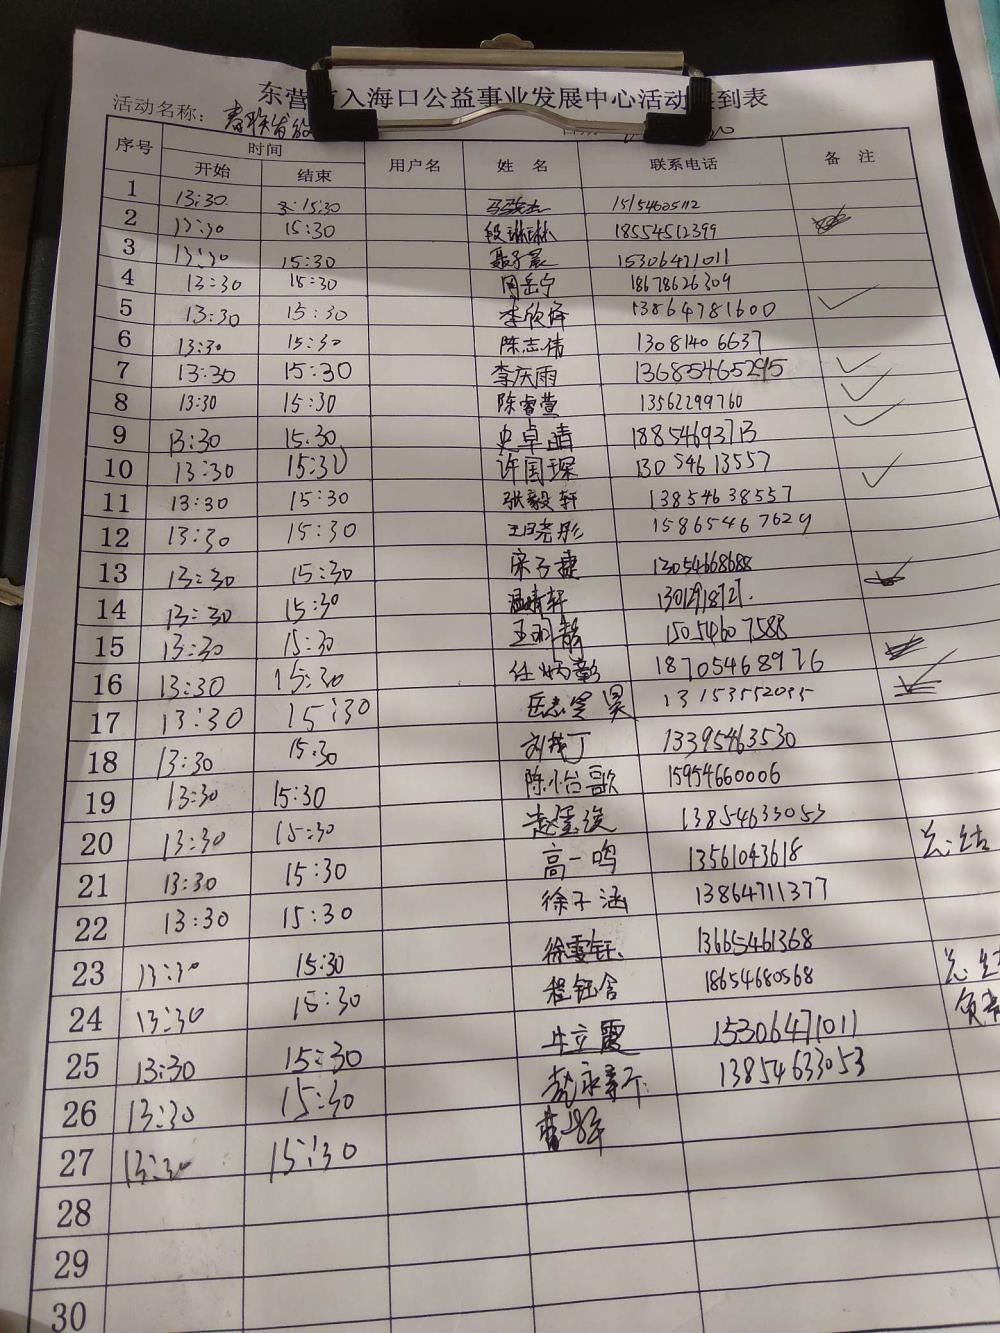 东营 入海口公益事业发展中心活动 到表
活动名称: 春联
序号 时间 用户名 姓 名 联系电话 备 注
开始 结束
1 13:30 15:30 15154605112
2 13:30 15:30 段琳琳 18554512399
3 13:30 15:30 15306471011
4 13:30 15:30 周岳宁 18678626309
5 13:30 15:30 李欣泽 13864781600
6 13:30 15:30 陈志伟 13081406637
7 13:30 15:30 李庆雨
8 13:30 15:30 陈睿萱 13562299760
9 13:30 15:30 史卓晴 18854693713
10 13:30 15:30 许国琛 13054613557
11 13:30 15:30 张毅轩 13854638557
12 13:30 15:30 王晓彤 15865467629
13 13:30 15:30 宋子捷 13054668688
14 13:30 15:30 温婧轩
15 13:30 15:30 王羽馨 15054607588
16 13:30 15:30 任炳彰 18705468976
17 13:30 15:30 岳志昊 昊 13153552095
18 13:30 15:30 刘茂丁 13395463530
19 13:30 15:30 陈怡歌 15954660006
20 13:30 15:30 13854633053
21 13:30 15:30 高一鸣 13561043618 总结
22 13:30 15:30 徐子涵 13864711377
23 13:30 15:30 徐雯钰 13665461368
24 13:30 15:30 程钰含 18654680568 总结
25 13:30 15:30 牛立霞 15306471011
26 13:30 15:30 13854633053
27 13:30 15:30
28
29
30